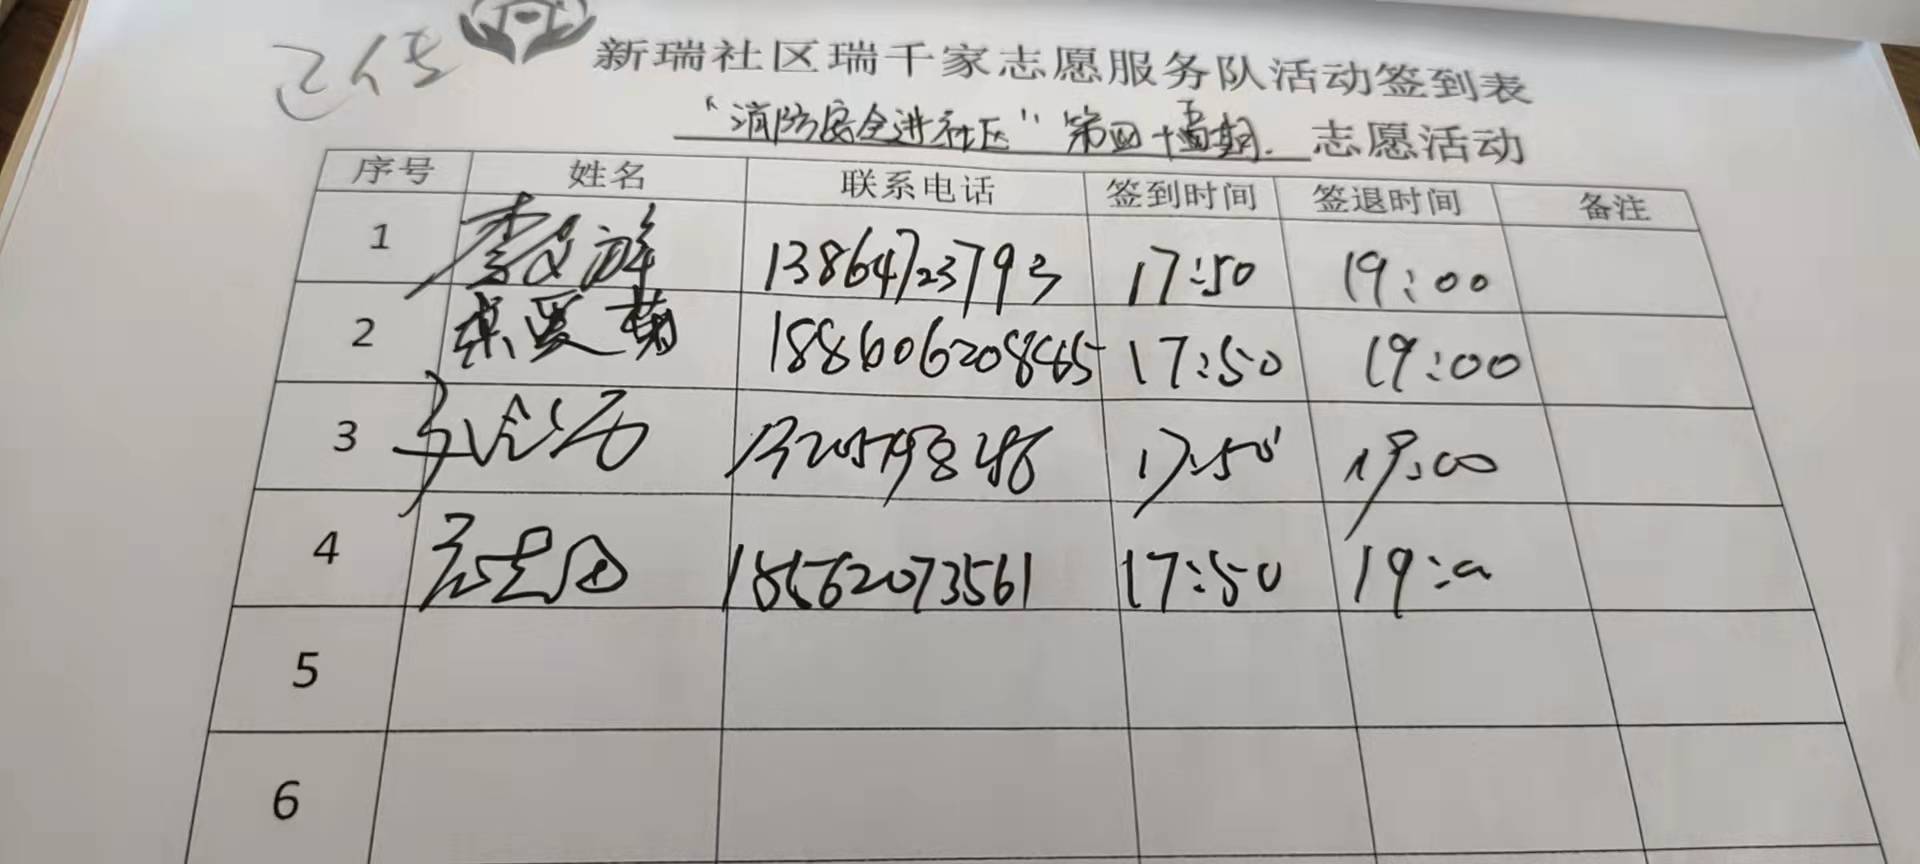 已传
新瑞社区瑞千家志愿服务队活动签到表
"消防安全进社区"第四十五期. 志愿活动
序号 姓名 联系电话 签到时间 签退时间 备注
1 13864723793 17:50 19:00
2 17:50 19:00
3 17:50 19:00
4 18562073561 17:50 19:00
5
6